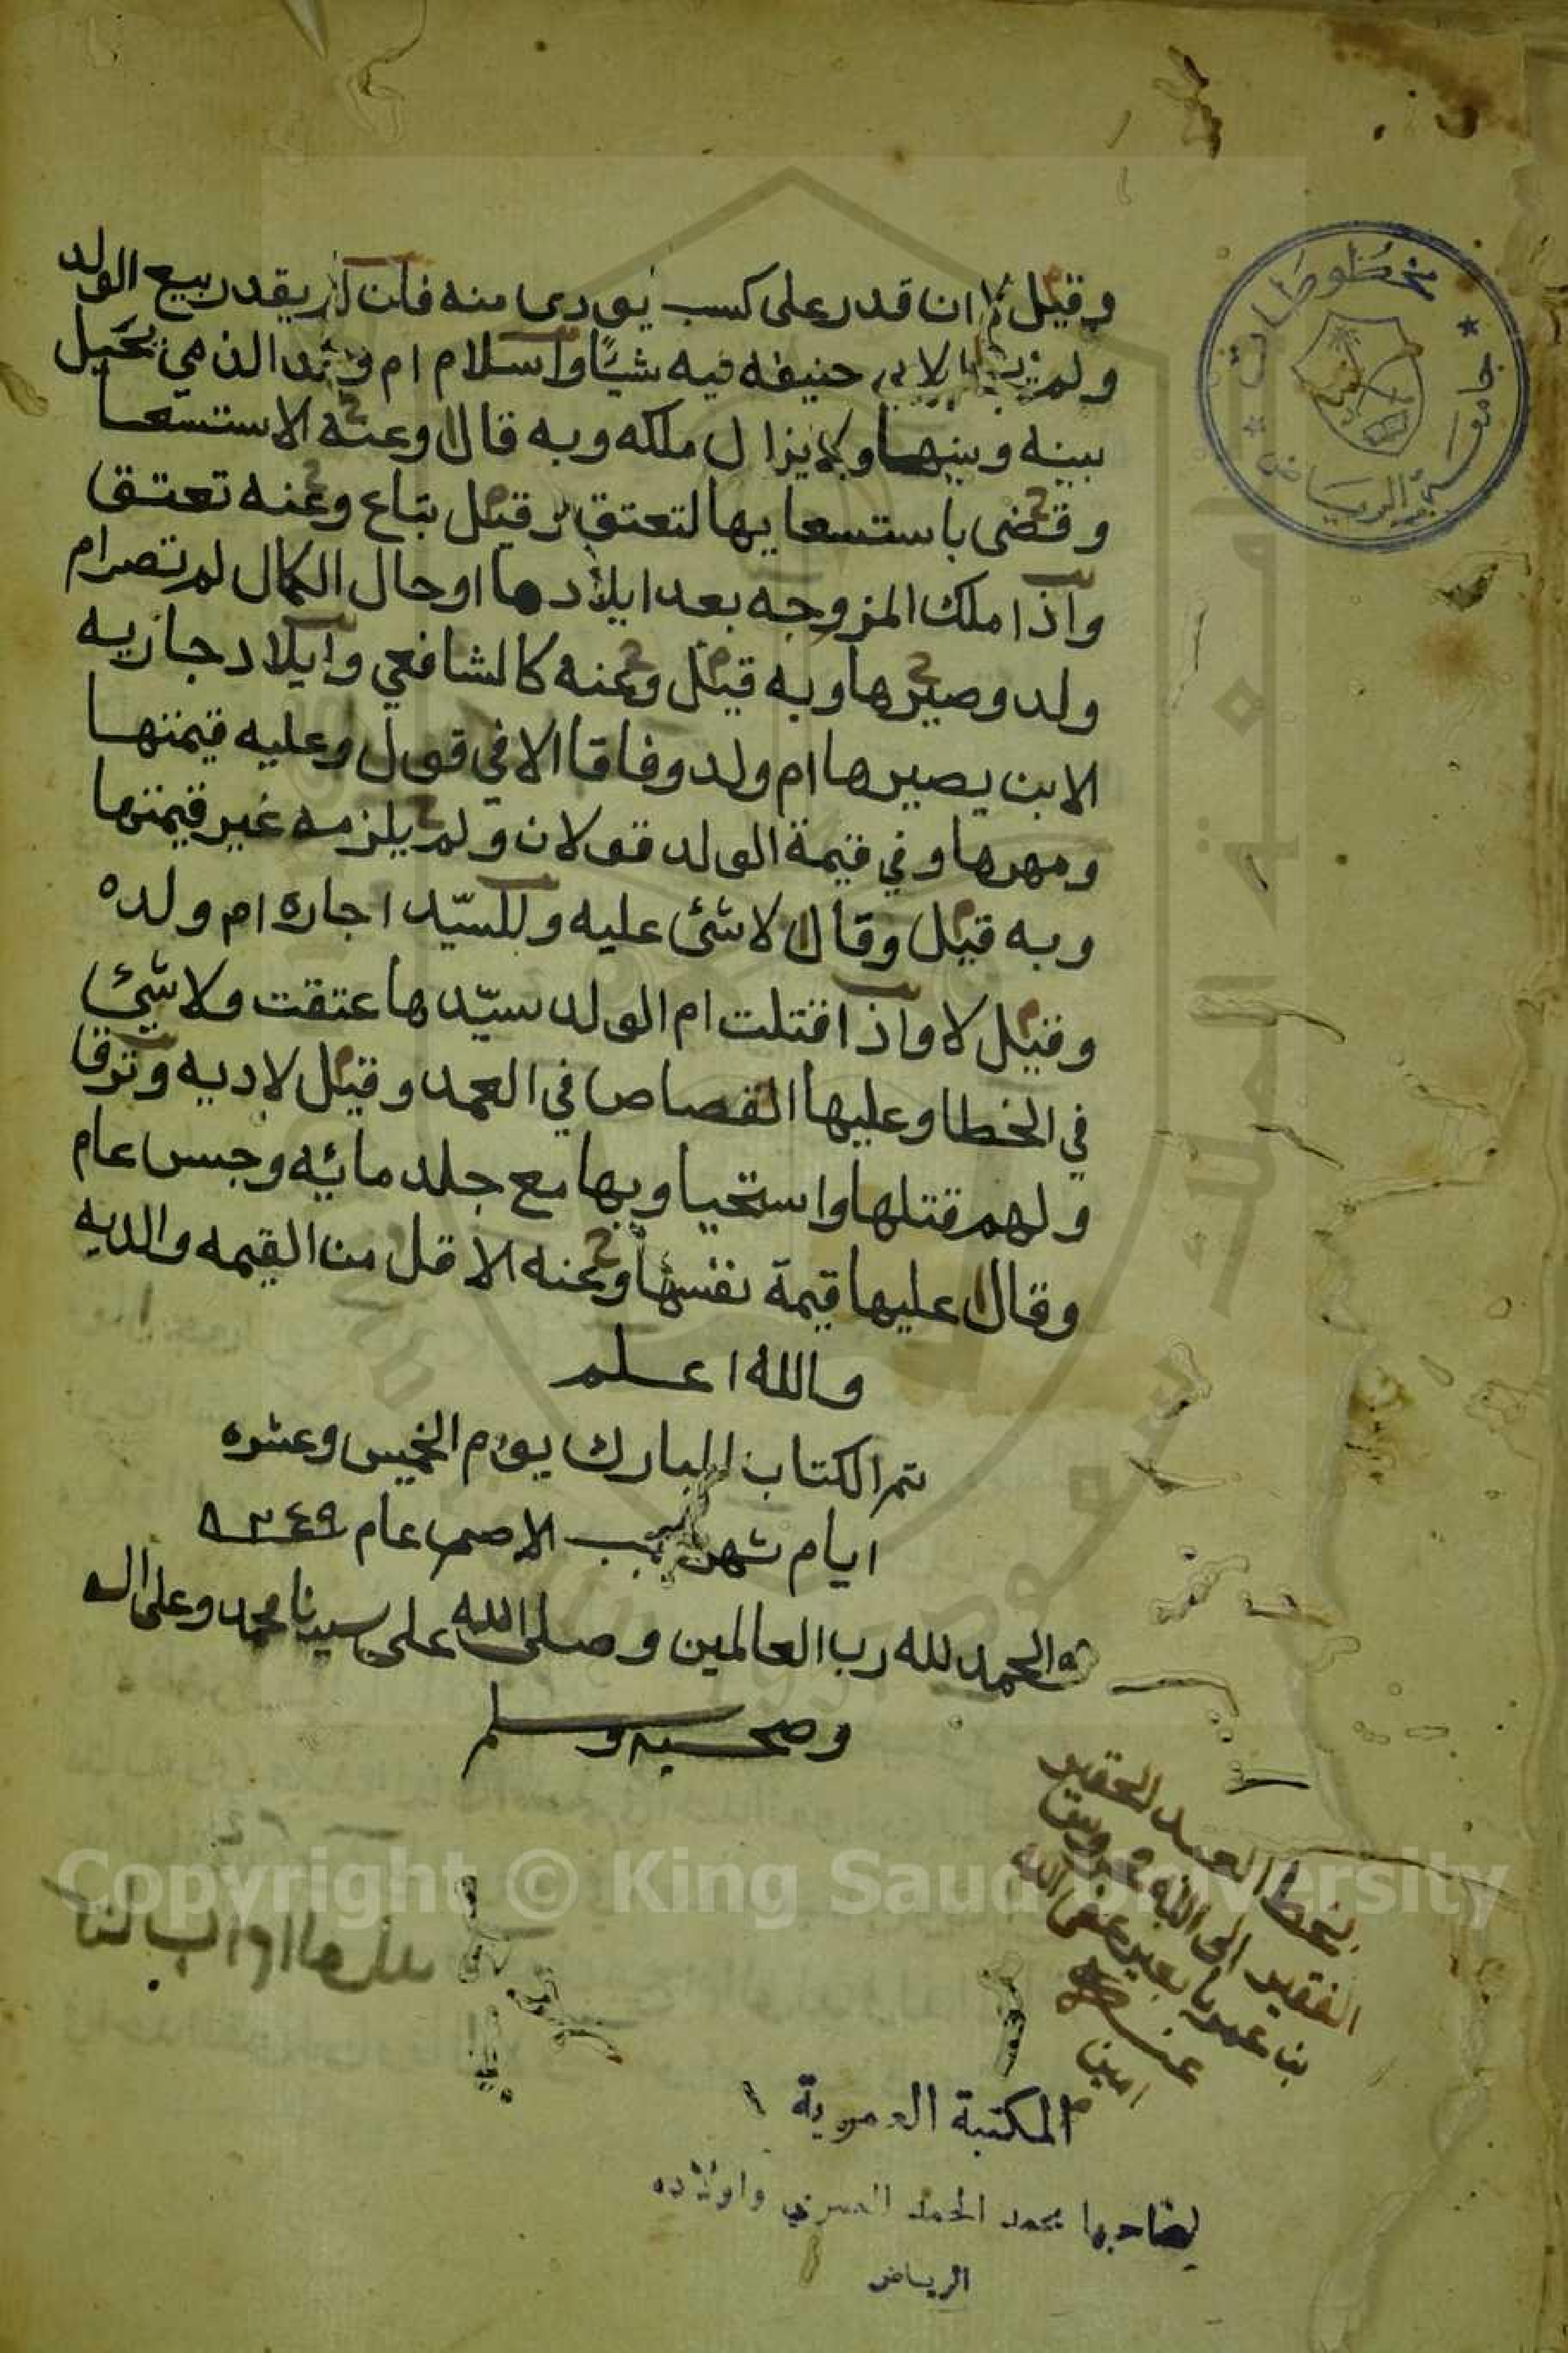 وقيل لا ان قدر على كسب يودى منه فان لم يقدر بيع الولد
ولم لابى حنيفه فيه شيا واسلام ام ولد الذمي يحيل
بينه وبينها ولا يزال ملكه وبه قال وعنه الاستسعا
وقضى باستسعايها لتعتق وقيل تباع وعنه تعتق
واذا ملك المزوجه بعد ايلادها او حال الكمال لم تصر ام
ولد وصيرها وبه قيل وعنه كالشافعي وايلاد جاريه
الابن يصيرها ام ولد وفاقا الا في قول وعليه قيمتها
ومهرها وفي قيمة الولد قولان ولم يلزمه غير قيمتها
وبه قيل وقال لا شئ عليه وللسيّد اجاره ام ولده
وقيل لا واذا قتلت ام الولد سيّدها عتقت ولا شئ
في الخطا وعليها القصاص في العمد وقيل لا ديه وترق
ولهم قتلها واستحياوبها مع جلد مائيه وحبس عام
وقال عليها قيمة نفسها وعنه الاقل من القيمه والديه
والله اعلم
تم الكتاب المبارك يوم الخميس وعشره
ايام شهر رجب الاصم عام
والحمد لله رب العالمين وصلى الله على سيدنا محمد وعلى اله
وصحبه وسلم
بخط العبد الحقير
الفقير الى الله
بن عمر عفى الله
عنه
امين
المكتبة العمرية
لصاحبها محمد الحمد العمري واولاده
الرياض
جامعة الرياض
مخطوطات
جامعة الملك سعود
Copyright © King Saud University